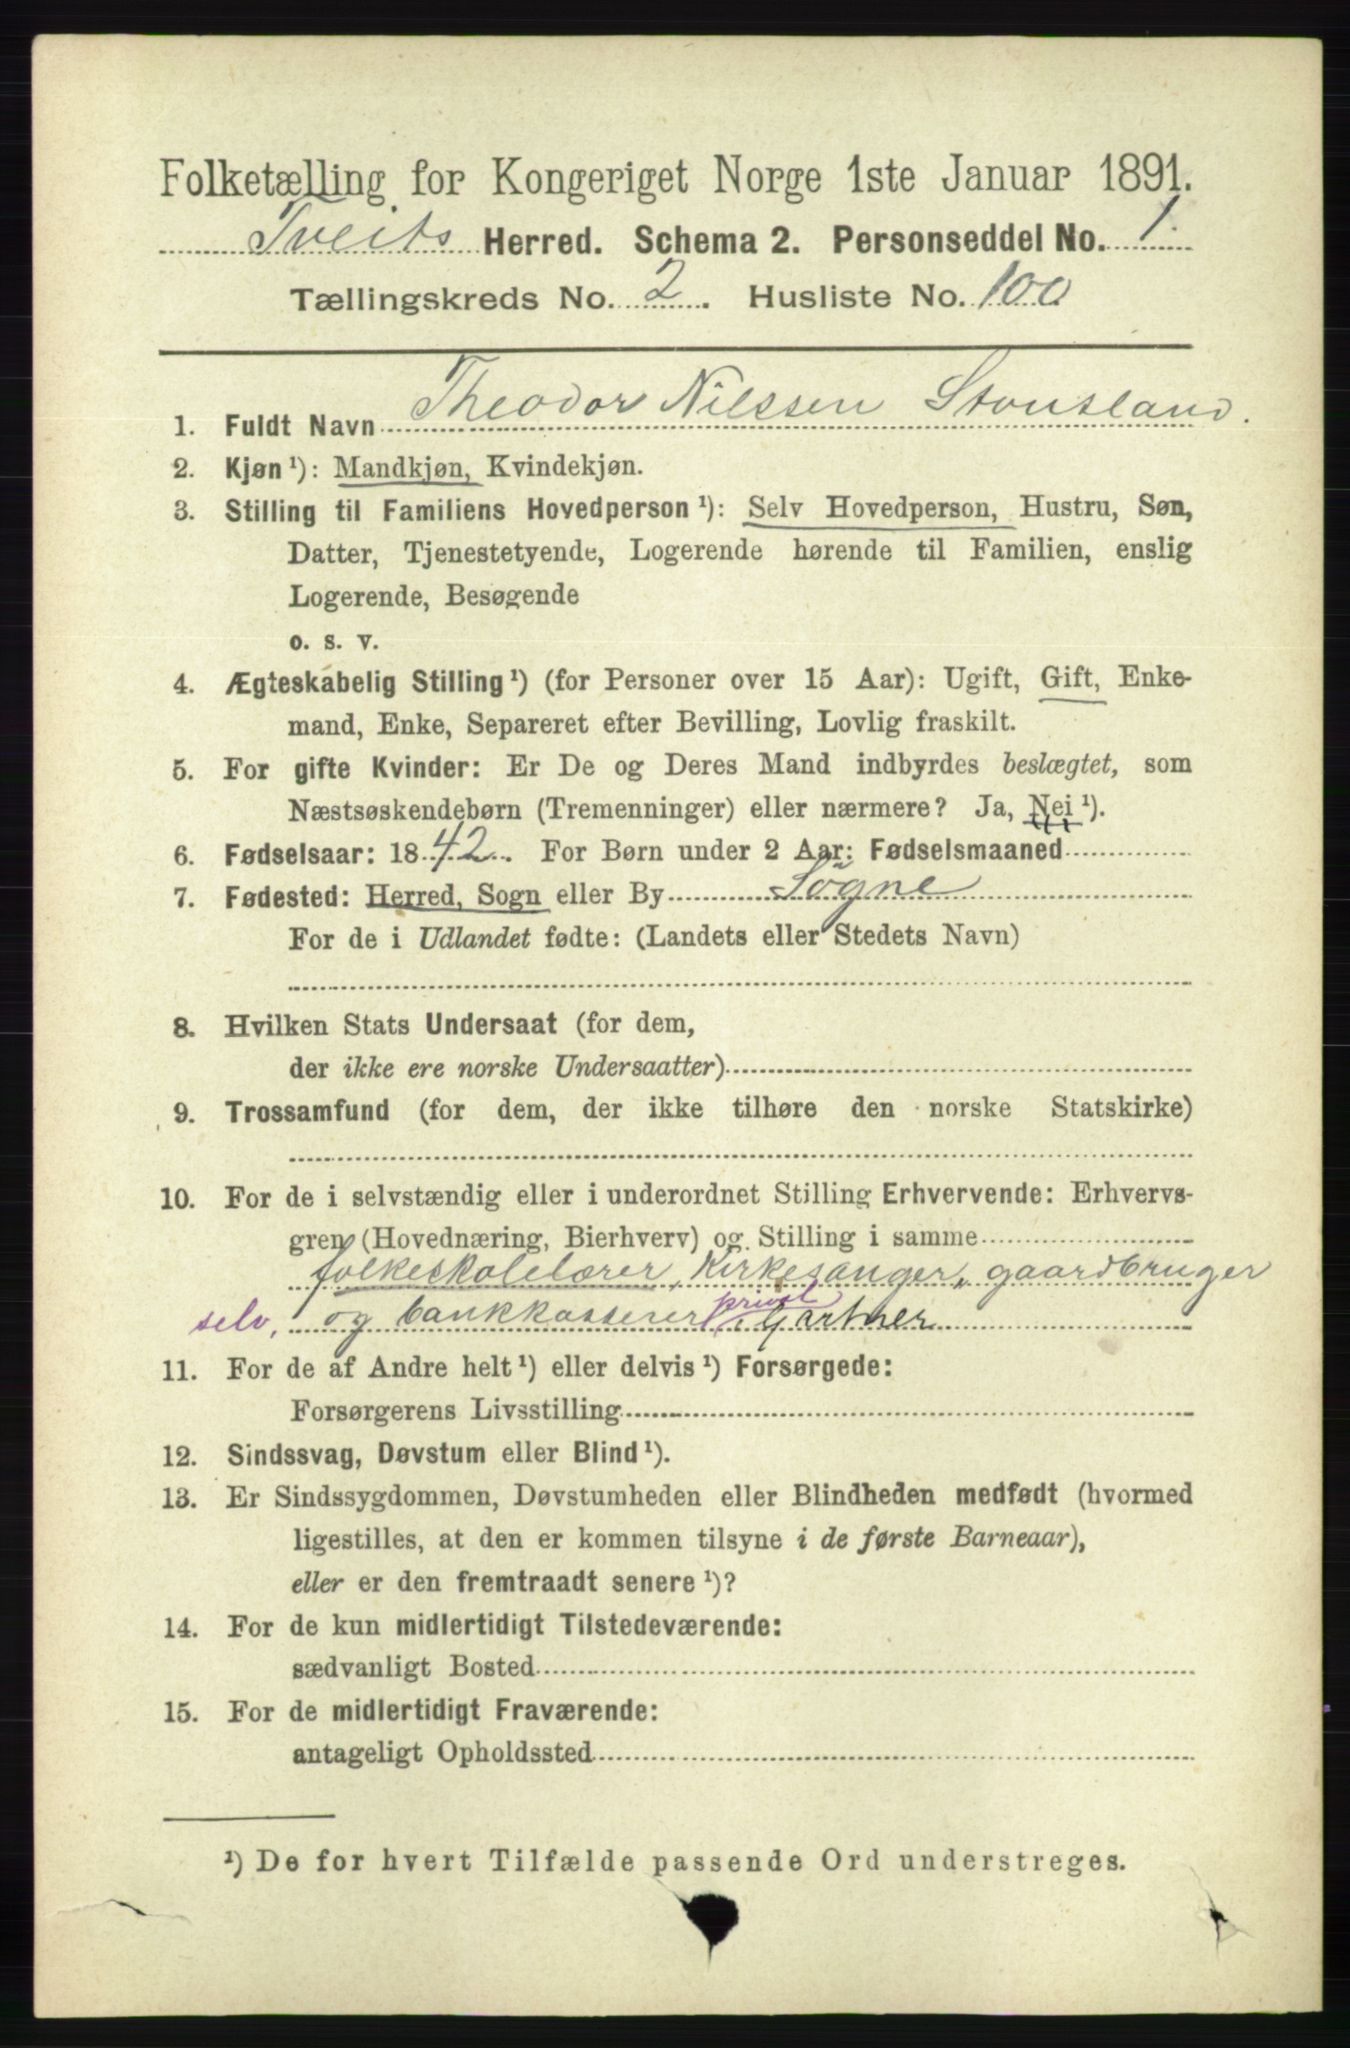 Folketælling for Kongeriget Norge 1ste Januar 1891.
Tveits Herred. Schema 2. Personseddel No. 1.
Tællingskreds No. 2. Husliste No. 100
1. Fuldt Navn Theodor Nilssen Stousland.
2. Kjøn ¹): Mandkjøn, Kvindekjøn.
3. Stilling til Familiens Hovedperson ¹): Selv Hovedperson, Hustru, Søn,
Datter, Tjenestetyende, Logerende hørende til Familien, enslig
Logerende, Besøgende
o. s. v.
4. Ægteskabelig Stilling ¹) (for Personer over 15 Aar): Ugift, Gift, Enke-
mand, Enke, Separeret efter Bevilling, Lovlig fraskilt.
5. For gifte Kvinder: Er De og Deres Mand indbyrdes beslægtet, som
Næstsøskendebørn (Tremenninger) eller nærmere? Ja, Nei ¹).
6. Fødselsaar: 1842. For Børn under 2 Aar: Fødselsmaaned
7. Fødested: Herred, Sogn eller By Sögne
For de i Udlandet fødte: (Landets eller Stedets Navn)
8. Hvilken Stats Undersaat (for dem,
der ikke ere norske Undersaatter)
9. Trossamfund (for dem, der ikke tilhøre den norske Statskirke)
10. For de i selvstændig eller i underordnet Stilling Erhvervende: Erhvervs-
gren (Hovednæring, Bierhverv) og Stilling i samme
folkeskolelærer, Kirkesanger, gaardbruger
selv, og bankkasserer privat. Gartner
11. For de af Andre helt ¹) eller delvis ¹) Forsørgede:
Forsørgerens Livsstilling
12. Sindssvag, Døvstum eller Blind ¹).
13. Er Sindssygdommen, Døvstumheden eller Blindheden medfødt (hvormed
ligestilles, at den er kommen tilsyne i de første Barneaar),
eller er den fremtraadt senere ¹)?
14. For de kun midlertidigt Tilstedeværende:
sædvanligt Bosted
15. For de midlertidigt Fraværende:
antageligt Opholdssted
¹) De for hvert Tilfælde passende Ord understreges.